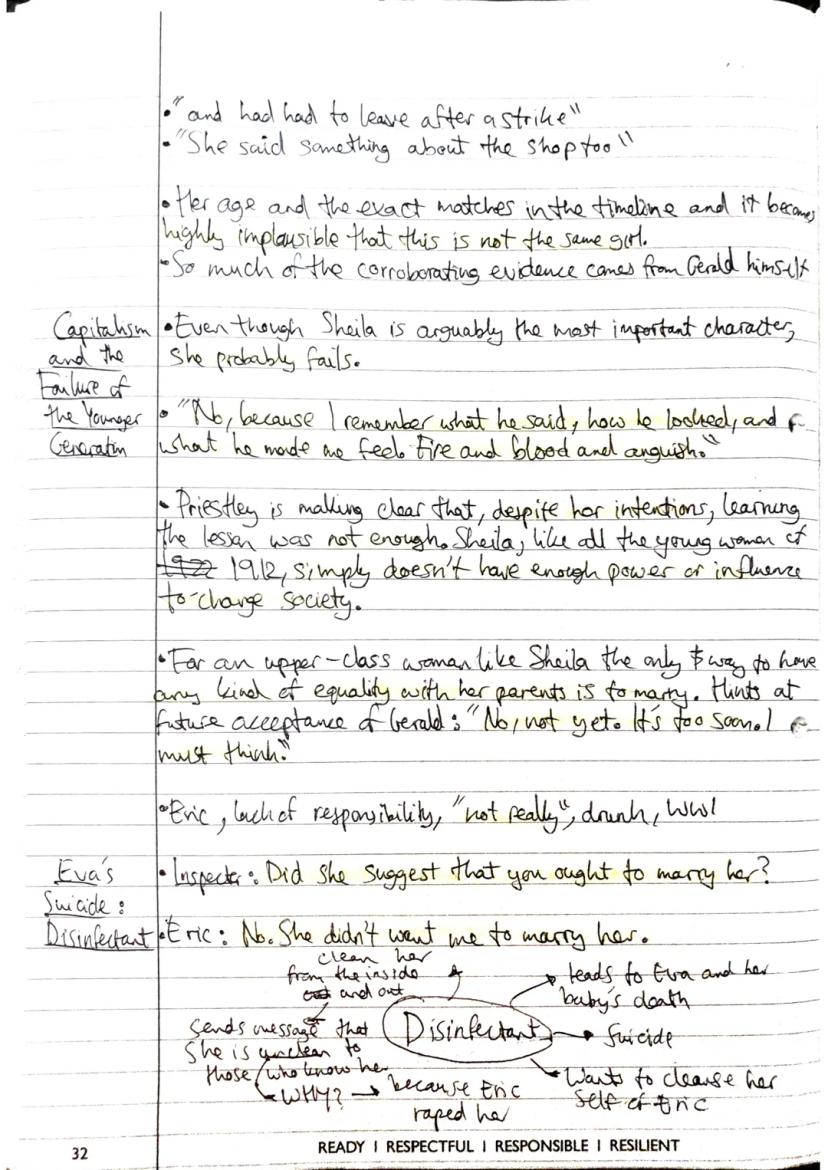 • "and had had to leave after a strike"
• "She said something about the shop too"
• Her age and the exact matches in the timeline and it becomes
highly implausible that this is not the same girl.
• So much of the corroborating evidence comes from Gerald himself
Capitalism
and the
Failure of
the Younger
Generation
• Even though Sheila is arguably the most important character,
she probably fails.
• "No, because I remember what he said, how he looked, and
what he made me feel. Fire and blood and anguish."
• Priestley is making clear that, despite her intentions, learning
the lesson was not enough. Sheila, like all the young women of
1922 1912, simply doesn't have enough power or influence
to change society.
• For an upper-class woman like Sheila the only way to have
any kind of equality with her parents is to marry. Hints at
future acceptance of Gerald: "No, not yet. It's too soon. I
must think."
• Eric, lack of responsibility, "not really", drunk, WW1
Eva's
Suicide:
Disinfectant
• Inspector: Did she suggest that you ought to marry her?
• Eric: No. She didn't want me to marry her.
clean her
from the inside
out and out
leads to Eva and her
baby's death
Sends message that
she is unclean to
those who know her
Disinfectant
Suicide
WHY? → because Eric
raped her
Wants to cleanse her
self of Eric
32
READY | RESPECTFUL | RESPONSIBLE | RESILIENT